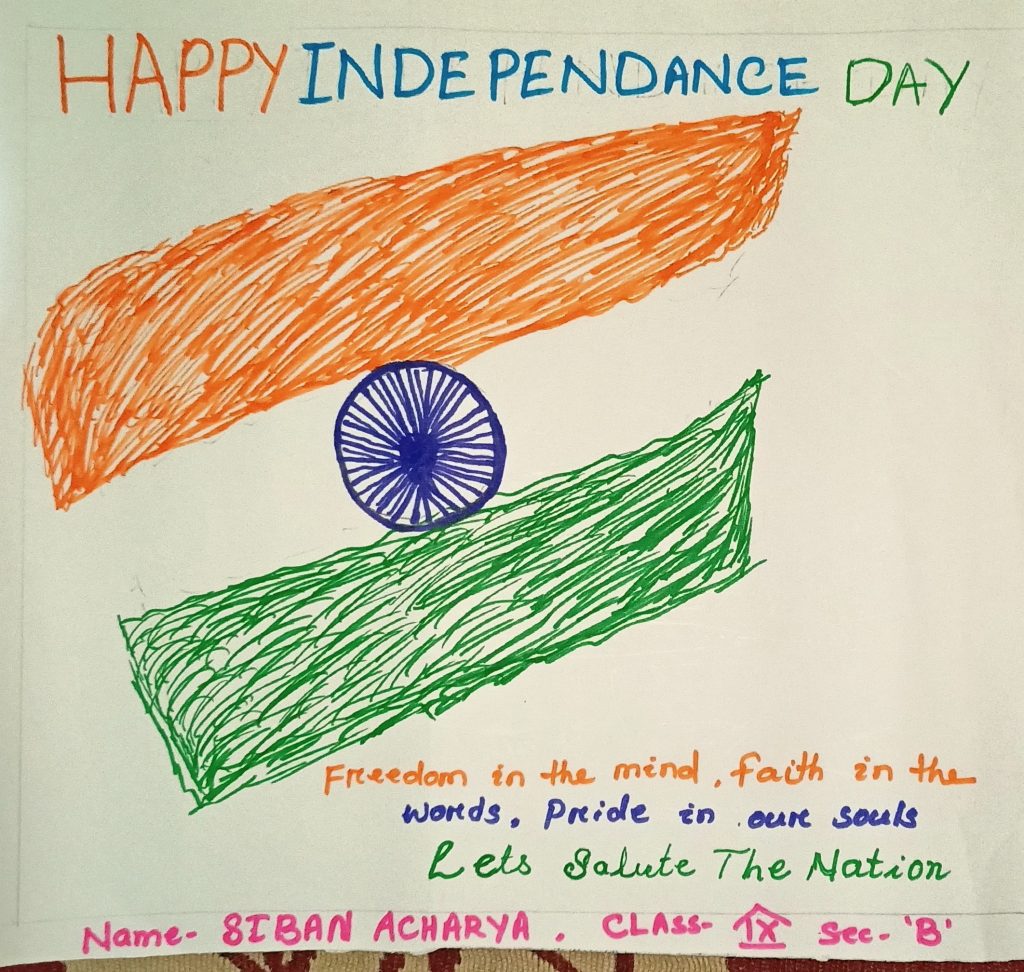 HAPPY INDEPENDANCE DAY
Freedom in the mind, faith in the
words, Pride in our souls
Lets Salute The Nation
Name- SIBAN ACHARYA. CLASS- IX Sec- 'B'